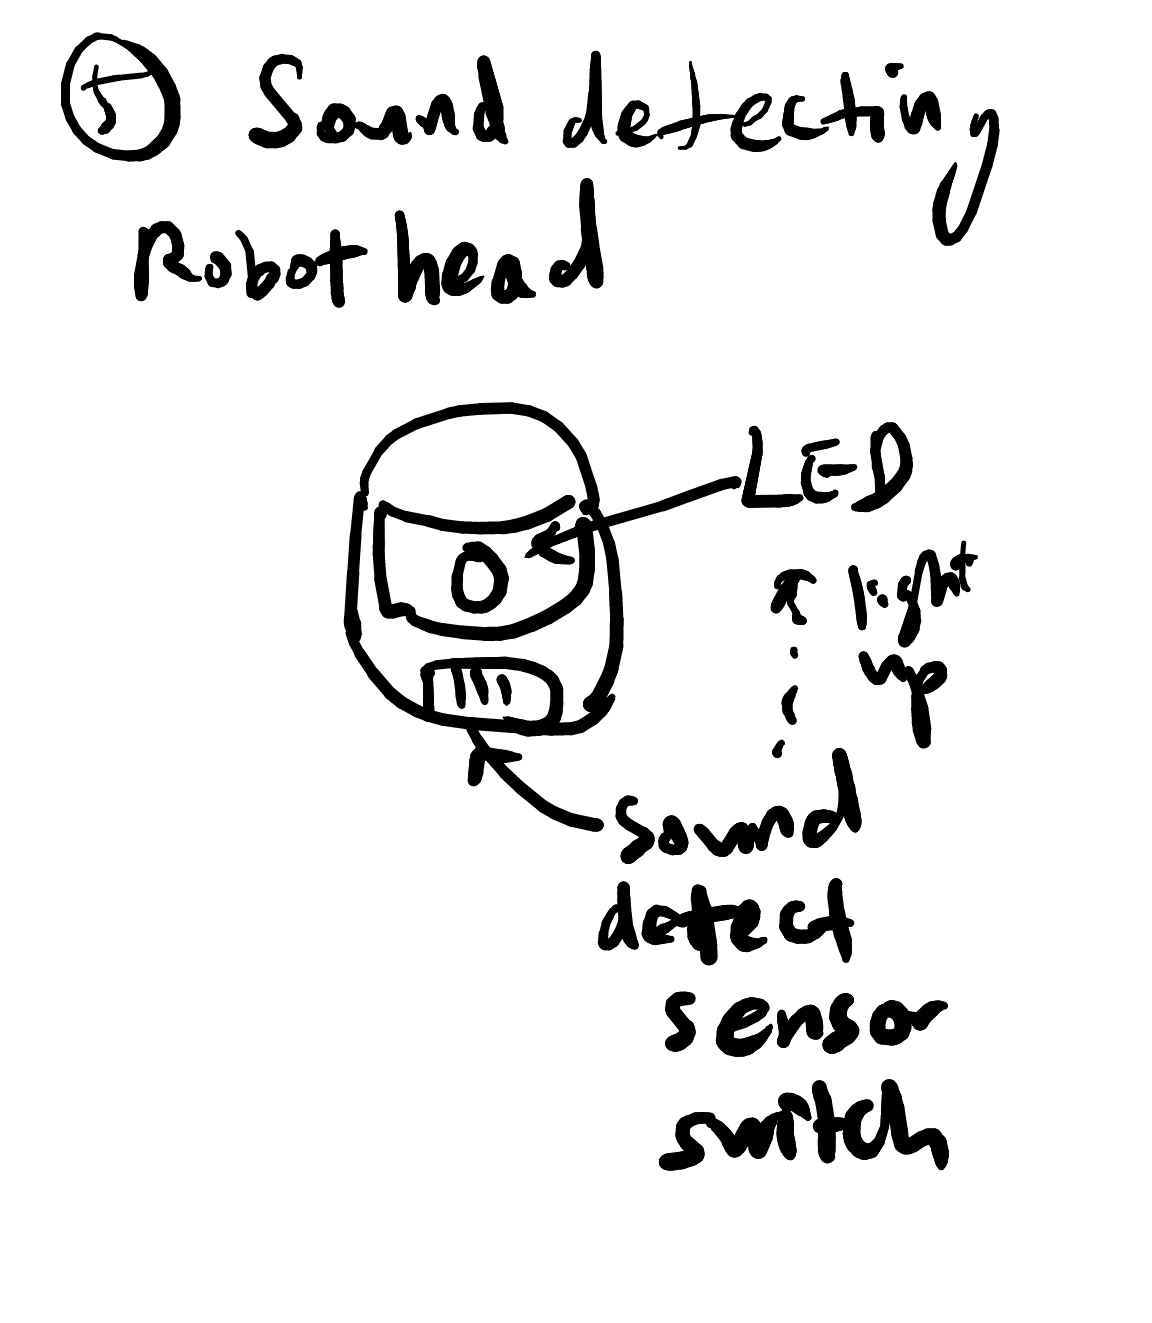 5 Sound detecting
Robot head
LED
light
up
Sound
detect
sensor
switch